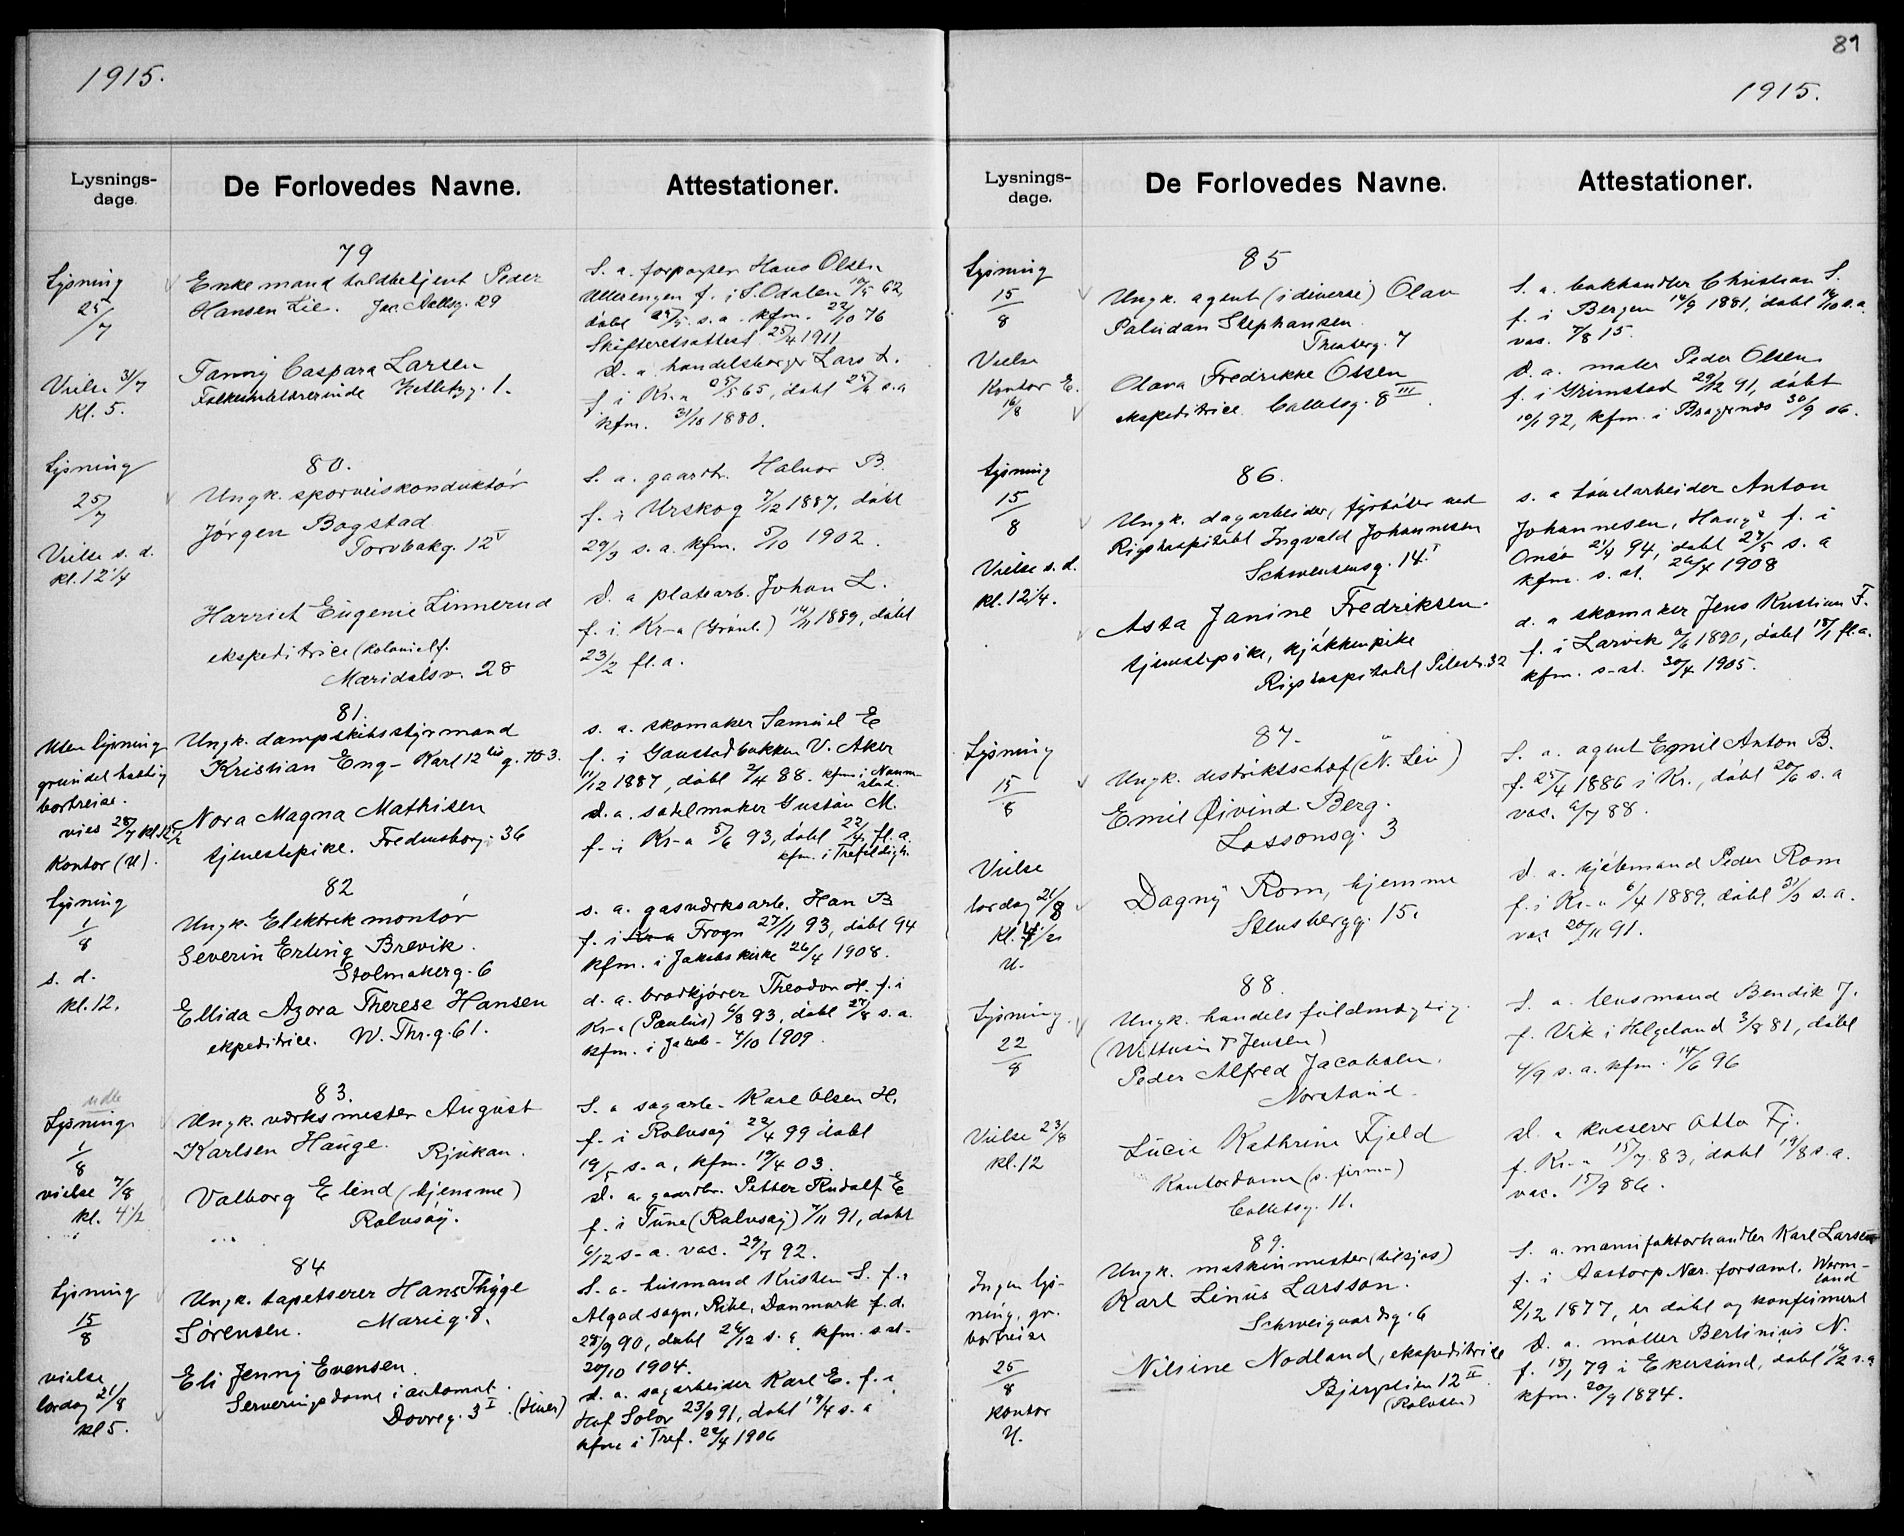 1915.
Lysnings-
dage.
De Forlovedes Navne.
Attestationer.
79
Lysning
25/7
Vielse 31/7
kl. 5.
Enkemand toldbetjent Peder
Hansen Lie. Jac. Aallsg. 29
Fanny Caspara Larsen
S. a. forpagter Hans Olsen
f. i S. Odalen 62,
døbt s. a. kfm. 22/10 76
Skifteretsattest 25/4 1911
d. a. handelsborger Lars L.
f. i Kr.a 65, døbt s. a
kfm. 31/10 1880.
80.
Lysning
25/7
Vielse s. d.
kl. 12 1/4
Ungk. sporveiskonduktør
Jørgen Bogstad
Torvbakg. 12 V
Harriet Eugenie Linnerud
ekspeditrice (kolonialf.
Maridalsv. 28
S. a. gaardbr. Halvor B.
f. i Urskog 7/12 1887, døbt
29/3 s. a. kfm. 5/10 1902.
d. a platearb. Johan L.
f. i. Kr-a (Grønl.) 14/11 1889, døbt
23/2 fl. a.
81.
Uten lysning
grundet hastig
bortreise.
vies 28/7 kl 12 1/2
Kontor (U).
Ungk. dampskibsstyrmand
Kristian Eng - Karl 12 tes g. 10 3.
Nora Magna Mathisen
tjenestepike. Fredensborg. 36
s. a. skomaker Samuel E
f. i Gaustadbakken V. Aker
11/12 1887, døbt 2/4 88. kfm i
d. a. salmaker Gustav M.
f. i Kr-a 5/6 93, døbt 22/4 fl. a.
kfm. i Trefoldigh.
82
Lysning
1/8
s. d.
kl. 12.
Ungk. Elektrikmontør
Severin Erling Brevik.
Stolmakerg. 6
Ellida Azora Therese Hansen
ekpeditrice. W. Thr. g 61.
s. a. gasverksarb. Han B
f. i Kr-a Frogn 27/11 93, døbt 94
kfm. i Jakobs kirke 26/4 1908.
d. a. brødkjører Theodor H. f. i
Kr-a (Paulus) 6/8 93, døbt 27/8 s. a.
kfm. i Jakob - 4/10 1909.
83.
ude
Lysning
1/8
vielse 7/8
kl. 4 1/2
Ungk. verksmester August
Karlsen Hauge. Rjukan.
Valborg Elind (hjemme)
Rolvsøy.
S. a sagarb. Karl Olsen H.
f. i Rolvsøy 22/4 99 døbt
19/5 s. a, kfm. 19/4 03.
d. a. gaardbr. Petter Rudolf E
f. i Tune (Rolvsøy) 7/11 91, døbt
6/12 s-a. vac. 29/7 92.
84
Lysning
15/8
vielse
lørdag 21/8
kl 5.
Ungk. tapetserer Hans Thyge
Sørensen. Marieg. 8.
Eli Jenny Evensen.
Serveringsdame i automat.
Dovreg. 3 I
S. a. husmand Kristen S. f. i
sogn, Ribe, Danmark f. d.
28/9 90, døbt 26/12 s. a. kfm. s. st.
20/10 1904.
d. a. sagarbeider Karl E. f. i
Hof Solør 23/3 91, døbt 19/4 s. a
kfm i Tref. 22/4 1906
81
1915.
Lysnings-
dage.
De Forlovedes Navne.
Attestationer.
85
Lysning
15/8
Vielse
Kontor E.
16/8
Ungk. agent (i diverse) Olav
Paludan Stephansen.
Thereseg. 7
Olava Fredrikke Olsen
ekspeditrice Colletsg. 8 III.
S. a. bokhandler Christian S.
f. i Bergen 14/9 1881, døbt 16/10 s. a.
vac. 7/8 15.
d. a. maler Peder Olsen
f. i Grimstad 29/12 91, døbt
10/1 92, kfm. i Bragernes 30/9 06.
86.
Lysning
15/8
Vielse s. d.
kl. 12 1/4.
Ungk. dagarbeider, fyrbøter ved
Rigshospitalet Ingvald Johannesen
Schwensensg. 14 I
Asta Janine Fredriksen.
tjenestepike, kjøkkenpike
Rigshospitalet Pilestr. 32
s. a tønelarbeider Anton
Johannesen, Haug f. i
Onsø 21/4 94, døbt 27/5 s. a
kfm. s. st. 26/4 1908
d. a skomaker Jens Kristian F.
f. i Larvik 1890, døbt 18/1 fl. a.
kfm. s-st. 30/4 1905.
87.
Lysning
15/8
Vielse
lørdag 21/8
U.
Ungk. distriktschef (N. Liv)
Emil Øivind Berg.
Lassonsg. 3
Dagny Rom, hjemme
Stensbergg. 15.
S. a. agent Emil Anton B.
f. 25/4 1886 i Kr., døbt 20/6 s. a
vac. 6/7 88.
d. a. kjøbmand Peder Rom
f. i Kr-a 6/4 1889, døbt 31/3 s. a.
vac 20/11 91.
88.
Lysning
22/8
Vielse 23/8
kl. 12
Ungk. handelsfuldmegtig
(Wittusen & Jensen)
Peder Alfred Jacobsen.
Norstrand.
Lucie Kathrine Fjeld
Kontordame (s. firma)
Colletsg. 11.
S. a. lensmand Bendik J.
f. Vik i Helgeland 3/8 81, døbt
4/9 s. a. kfm. 14/6 96
d. a kasserer Otto Fj.
f. Kr-a 15/7 83, døbt 19/8 s. a.
vac. 15/9 86.
89.
Ingen lys-
ning, gr.
bortreise
25/8
kontor
U.
Ungk. maskinmester (tilsjøs)
Karl Linus Larsson.
Schweigaardsg. 6
Nilsine Nodland, ekspeditrice
12 II
S. a. manufakturhandler Karl Larsen
f. i Aastorp Nor. forsaml. Werm-
land
2/12 1877, er døbt og konfirmeret
d. a. møller Bertinius N.
f. 18/1 79 i Ekersund, døbt 14/2 s. a
kfm. 20/9 1894.